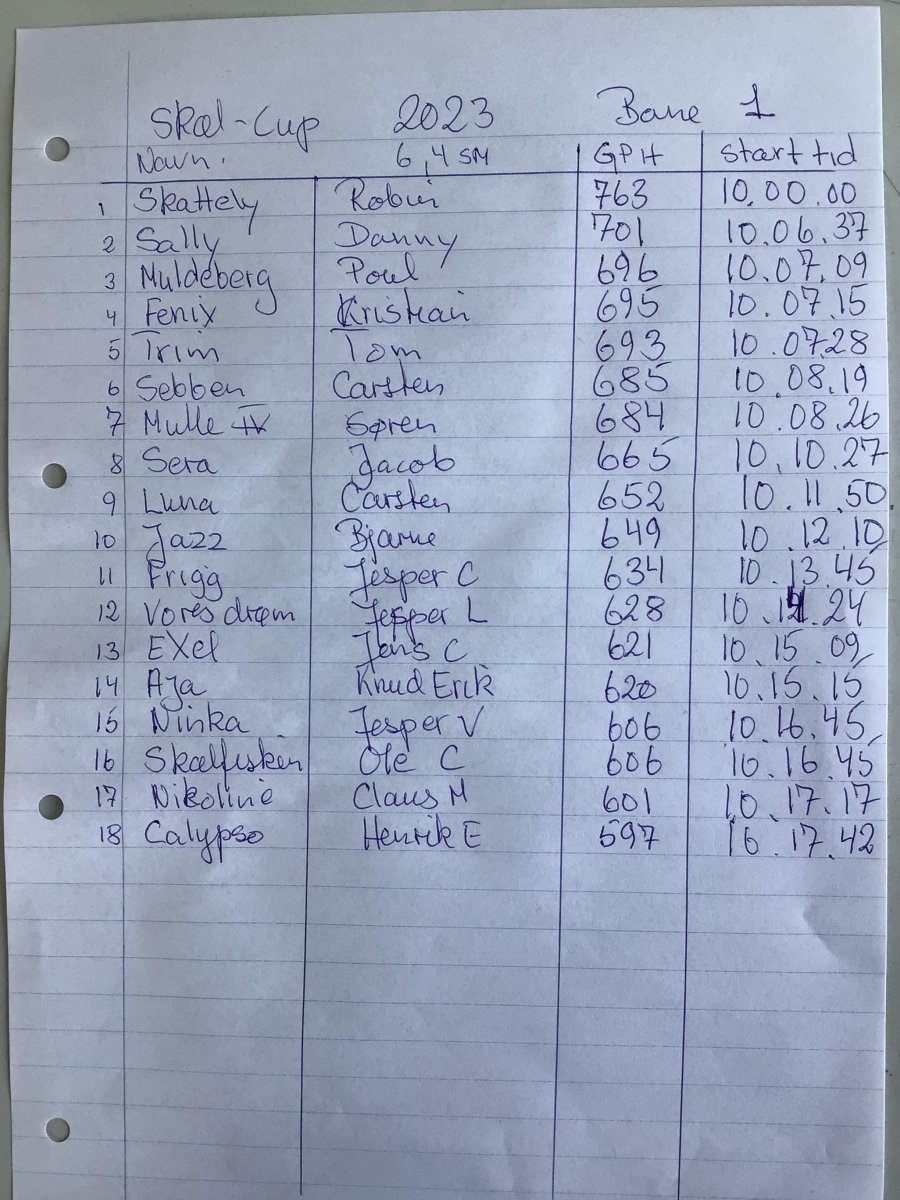 Skæl-Cup 2023 Bane 1
Navn. 6,4 SM GPH Start tid
1 Skattely Robin 763 10.00.00
2 Sally Danny 701 10.06.37
3 Muldeberg Poul 696 10.07.09
4 Fenix Kristian 695 10.07.15
5 Trim Tom 693 10.07.28
6 Sebben Carsten 685 10.08.19
7 Mulle IV Søren 684 10.08.26
8 Sera Jacob 665 10.10.27
9 Luna Carsten 652 10.11.50
10 Jazz Bjarne 649 10.12.10
11 Frigg Jesper C 634 10.13.45
12 Vores drøm Jesper L 628 10.14.24
13 EXel Jens C 621 10.15.09
14 Aja Knud Erik 620 10.15.15
15 Ninka Jesper V 606 10.16.45
16 Skælfisken Ole C 606 10.16.45
17 Nikoline Claus M 601 10.17.17
18 Calypso Henrik E 597 10.17.42